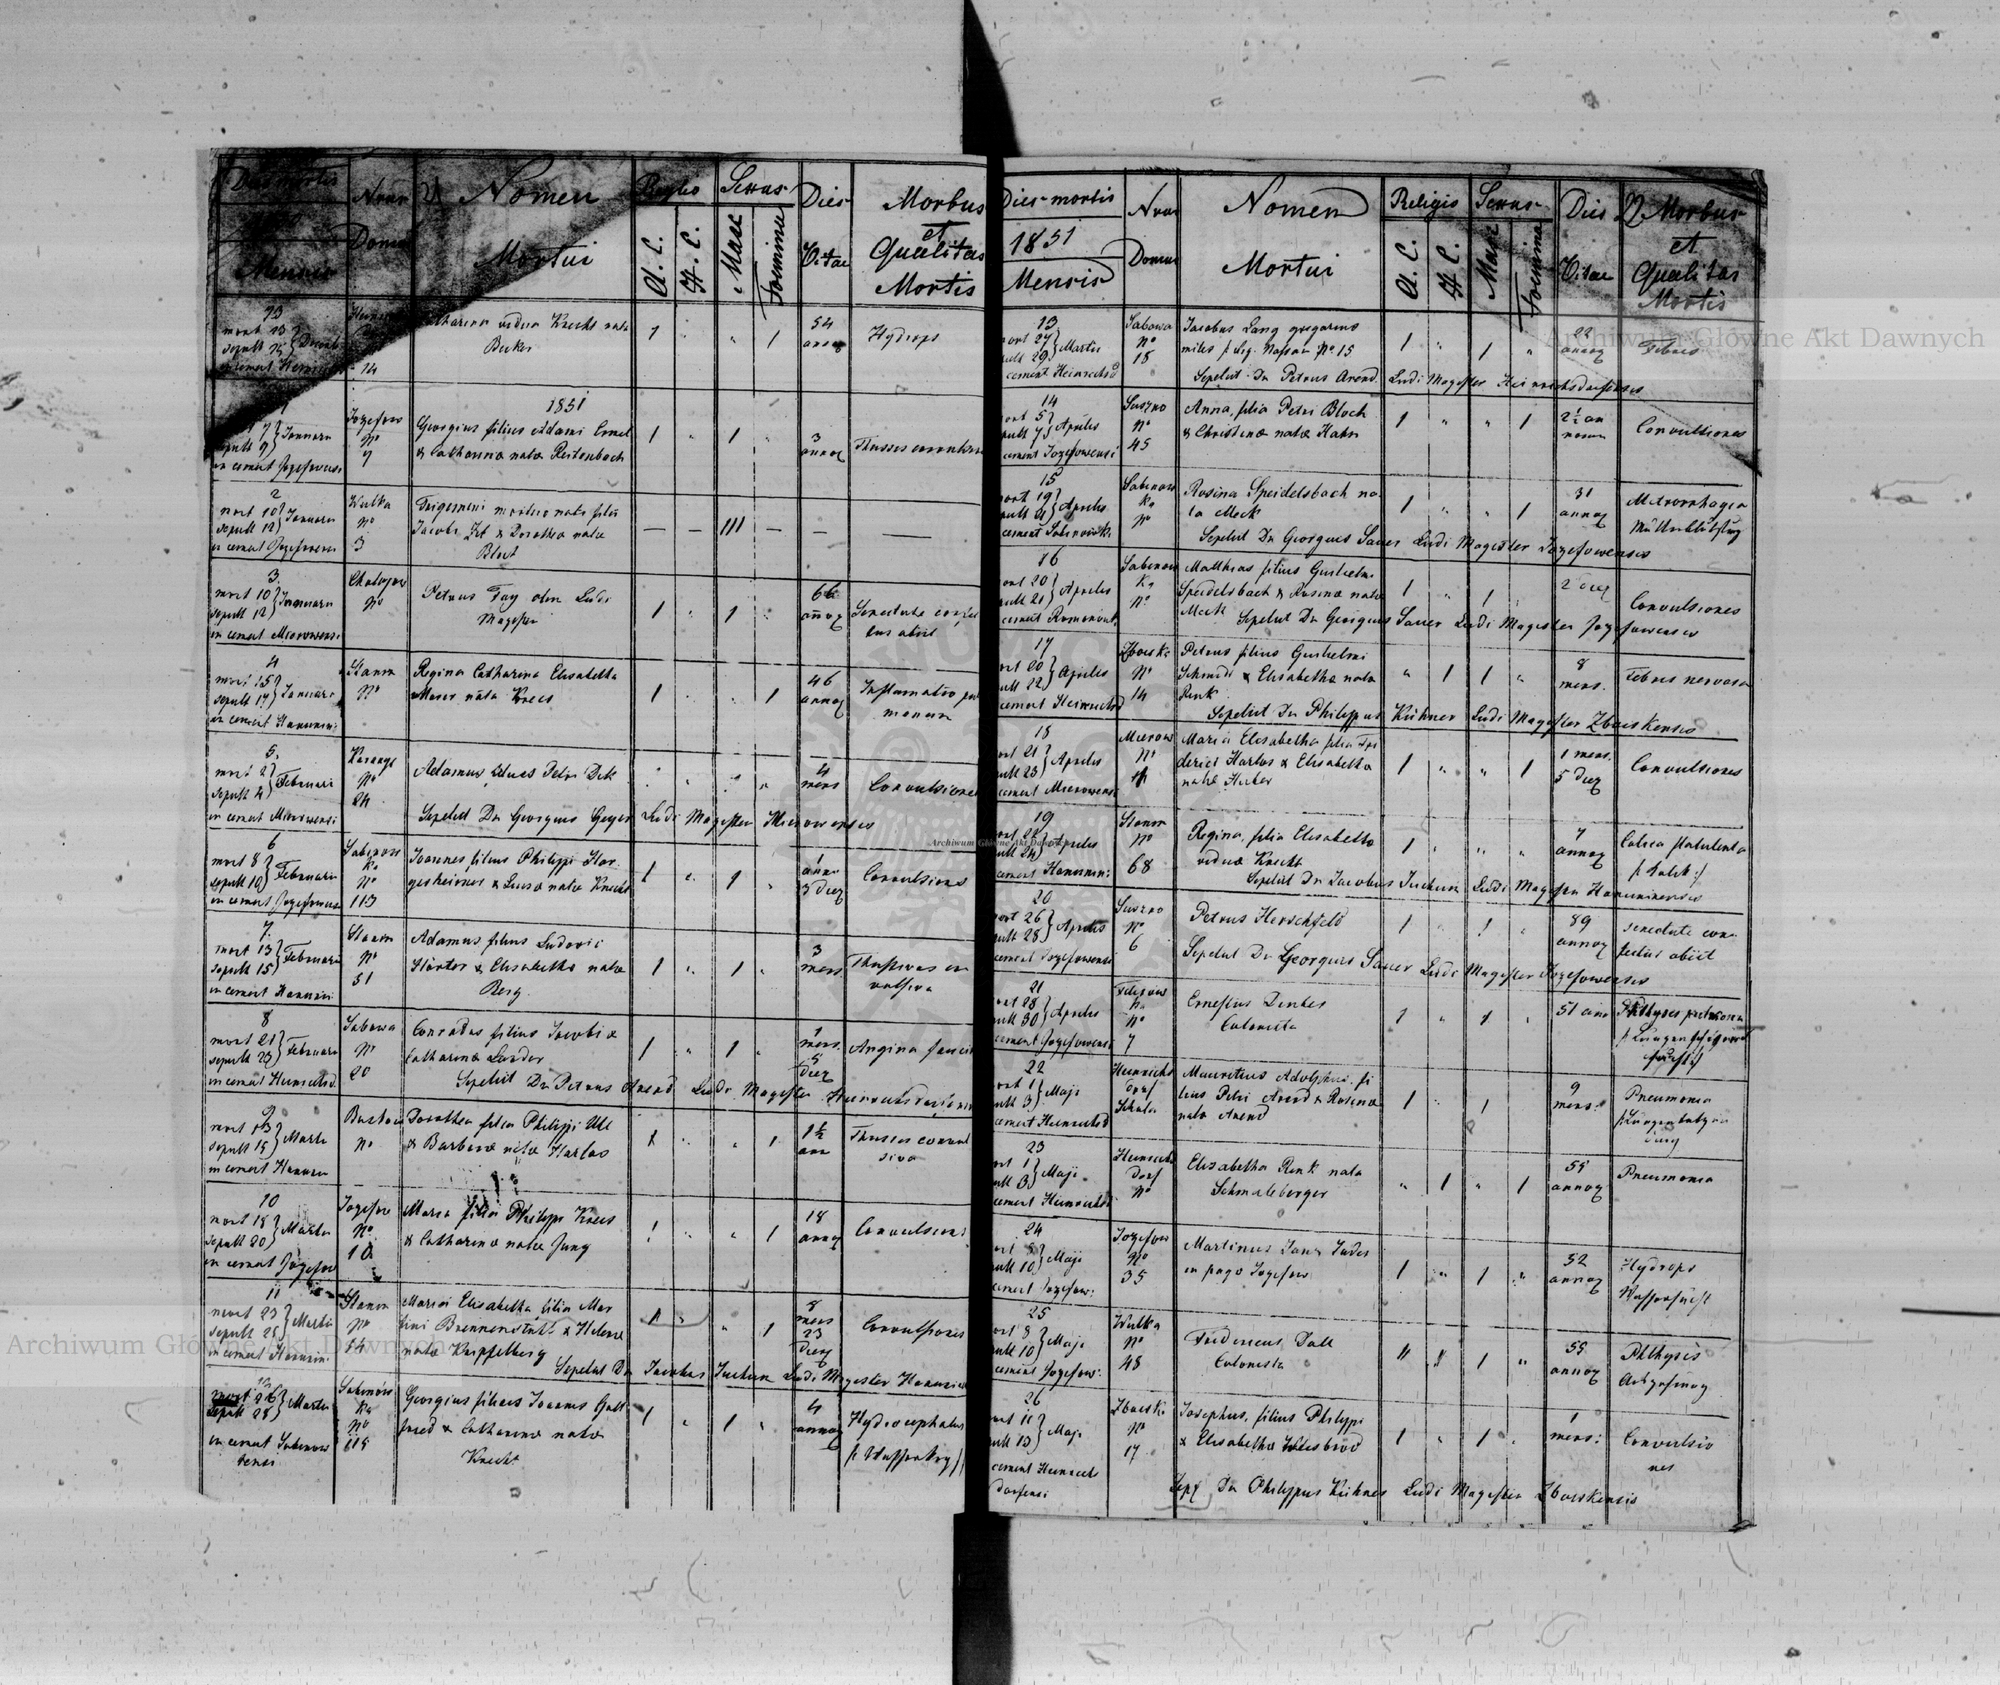 Dies mortis
Mensis
Nrus
Domus
Nomen
Mortui
Religio
A. C.
H. C.
Sexus
Masc
Foeminae
Dies
Vitae
Morbus
et
Qualitas
Mortis
13
mort 13
sepult 15 } Decemb
in cemet Heinrichs
14
Catharina vidua Knecht nata
Becker
1
1
54
annor
Hydrops
1851
1
7
sepult 9 } Januarii
in cemet Jozefowensi
Jozefow
No
7
Georgius filius Adami Ernel
& Catharina nata Reitenbach
1
1
3
annor
Thussis convulsiva
2
mort 10
sepult 12 } Januarii
in cemet Jozefowensi
Wulka
No
3
Trigemini mortuo nati filii
Jacobi & Dorothea nata
III
3.
mort 10
sepult 12 } Januarii
in cemet Mierowensi
No
Petrus Fay olim Ludi
Magister
1
1
66
annor
Senectute confec
tus abiit
4
mort 15
sepult 17 } Januarii
in cemet Hanunin:
Stanin
No
Regina Catharina Elisabetha
Maurer nata Krees
1
1
46
annor
Inflamatio pul
monum
5.
mort 2
sepult 4 } Februarii
in cemet Mierowensi
No
24
Adamus filius Petri
4
mens
Convulsiones
Sepelit Dn Georgius Geyer Ludi Magister Mierowensis
6
mort 8
sepult 10 } Februarii
in cemet Jozefowensi
Sabinow
Ka
No
113
Joannes filius Philippi Har
gesheimer & Luisa nata Knecht
1
1
1
anno
3 Dier
Convulsiones
7.
mort 13
sepult 15 } Februarii
in cemet Hanunin:
Stanin
No
51
Adamus filius Ludovici
Harter & Elisabetha nata
Berg
1
1
3
mens
Thussis con
vulsiva
8
mort 21
sepult 23 } Februarii
in cemet Heinrichsd.
Sabowa
No
20
Conradus filius Jacobi &
Catharina Lauder
1
1
1
mens.
5
Dier
Angina faucium
Sepelit Dn Petrus Arend Ludi Magister Heinrichsdorfensis
9
mort 13
sepult 15 } Martii
in cemet Hanunin
No
Dorothea filia Philippi Ull
& Barbara nata Harlos
1
1
1½
ann
Thussis convul
siva
10
mort 18
sepult 20 } Martii
in cemet Jozefow
Jozefow
No
10
Maria filia Philippi Krees
& Catharina nata Jung
1
1
18
annor
Convulsiones
11
mort 23
sepult 25 } Martii
in cemet Hanunin:
Stanin
No
54
Maria Elisabetha filia Mar
tini Brennenstuhl & Helena
nata Knipfelberg
1
1
8
mens
23
Dier
Convulsiones
Sepelit Dn Jacobus Juckum Ludi Magister Hanunin
12
mort 26
sepult 28 } Martii
in cemet Sabinow
kensi
Sabinow
Ka
No
115
Georgius filius Joannis Gott
fried & Catharina nata
Knecht
1
1
4
annor
Hydrocephalus
Dies mortis
1851
Mensis
Nrus
Domus
Nomen
Mortui
Religio
A. C.
H. C.
Sexus
Masc
Foemina
Dies
Vitae
Morbus
et
Qualitas
Mortis
13
mort 27
sepult 29 } Martii
cemet Heinrichsd
Sabowa
No
18
Jacobus Lang gregarius
miles / Leg. Nassau No 15
1
1
22
annor
Febris
Sepelit Dn Petrus Arend Ludi Magister Heinrichsdorfensis
14
mort 5
sepult 7 } Aprilis
cemet Jozefowensi
Suszno
No
45
Anna, filia Petri Bloch
& Christina nata Hahn
1
1
2½ an
norum
Convulsiones
15
mort 19
sepult 21 } Aprilis
cemet Sabinowk:
Sabinow
Ka
No
Rosina Speidelsbach na
ta Meck
1
1
31
annor
Metrorrhagia
Sepelit Dn Georgius Sauer Ludi Magister Jozefowensis
16
mort 20
sepult 21 } Aprilis
Sabinow
Ka
No.
Matthias filius Guilielmi
Speidelsbach & Rosina nata
Meck
1
1
2 Dier
Convulsiones
Sepelit Dn Georgius Sauer Ludi Magister Jozefowensis
17
mort 20
sepult 22 } Aprilis
cemet Heinrichsd
Zboisk:
No
14
Petrus filius Guilielmi
Schmidt & Elisabetha nata
Rink
1
1
8
mens.
Febris nervosa
Sepelit Dn Philippus Kühner Ludi Magister Zboiskensis
18
mort 21
sepult 23 } Aprilis
cemet Mierowensi
Mierow
No
Maria Elisabetha filia Fri
derici Harlos & Elisabetha
nata Huber
1
1
1 mens.
5 Dier
Convulsiones
19
mort 22
sepult 24 } Aprilis
cemet Hanunin:
Stanin
No
68
Regina, filia Elisabetha
vidua Knecht
1
7
annor
Colica flatulenta
Sepelit Dn Jacobus Juckum Ludi Magister Hanuninensis
20
mort 26
sepult 28 } Aprilis
cemet Jozefowensi
Suszno
No
6
Petrus Herschfeld
1
1
89
annor
senectute con
fectus abiit
Sepelit Dn Georgius Sauer Ludi Magister Jozefowensis
21
mort 28
sepult 30 } Aprilis
cemet Jozefowensi
No
7
Ernestus Denkes
Colonista
1
1
51 ann
Phthysis pulmonum
22
mort 1
sepult 3 } Maji
cemet Heinrichsd
Heinrichs
dorf
Schula
Mauritius Adolphus fi
lius Petri Arend & Rosina
nata Arend
1
1
9
mens:
Pneumonia
23
mort 1
sepult 3 } Maji
cemet Heinrichsd
Heinrichs
dorf
No
Elisabetha Rink nata
Schmaleberger
1
1
55
annor
Pneumonia
24
mort 8
sepult 10 } Maji
cemet Jozefow:
Jozefow
No
35
Martinus Janz Judex
in pago Jozefow
1
1
52
annor
Hydrops
Wassersucht
25
mort 8
sepult 10 } Maji
cemet Jozefow:
Wulka
No
48
Fridericus Dall
Colonista
1
55
annor
Phthysis
26
mort 11
sepult 13 } Maji
cemet Heinrichs
dorfensi
Zboisk:
No
17
Josephus, filius Philippi
& Elisabetha
1
1
1
mens:
Convulsio
nes
Sepel Dn Philippus Kühner Ludi Magister Zboiskensis
Archiwum Główne Akt Dawnych
Archiwum Główne Akt Dawnych
Archiwum Główne Akt Dawnych